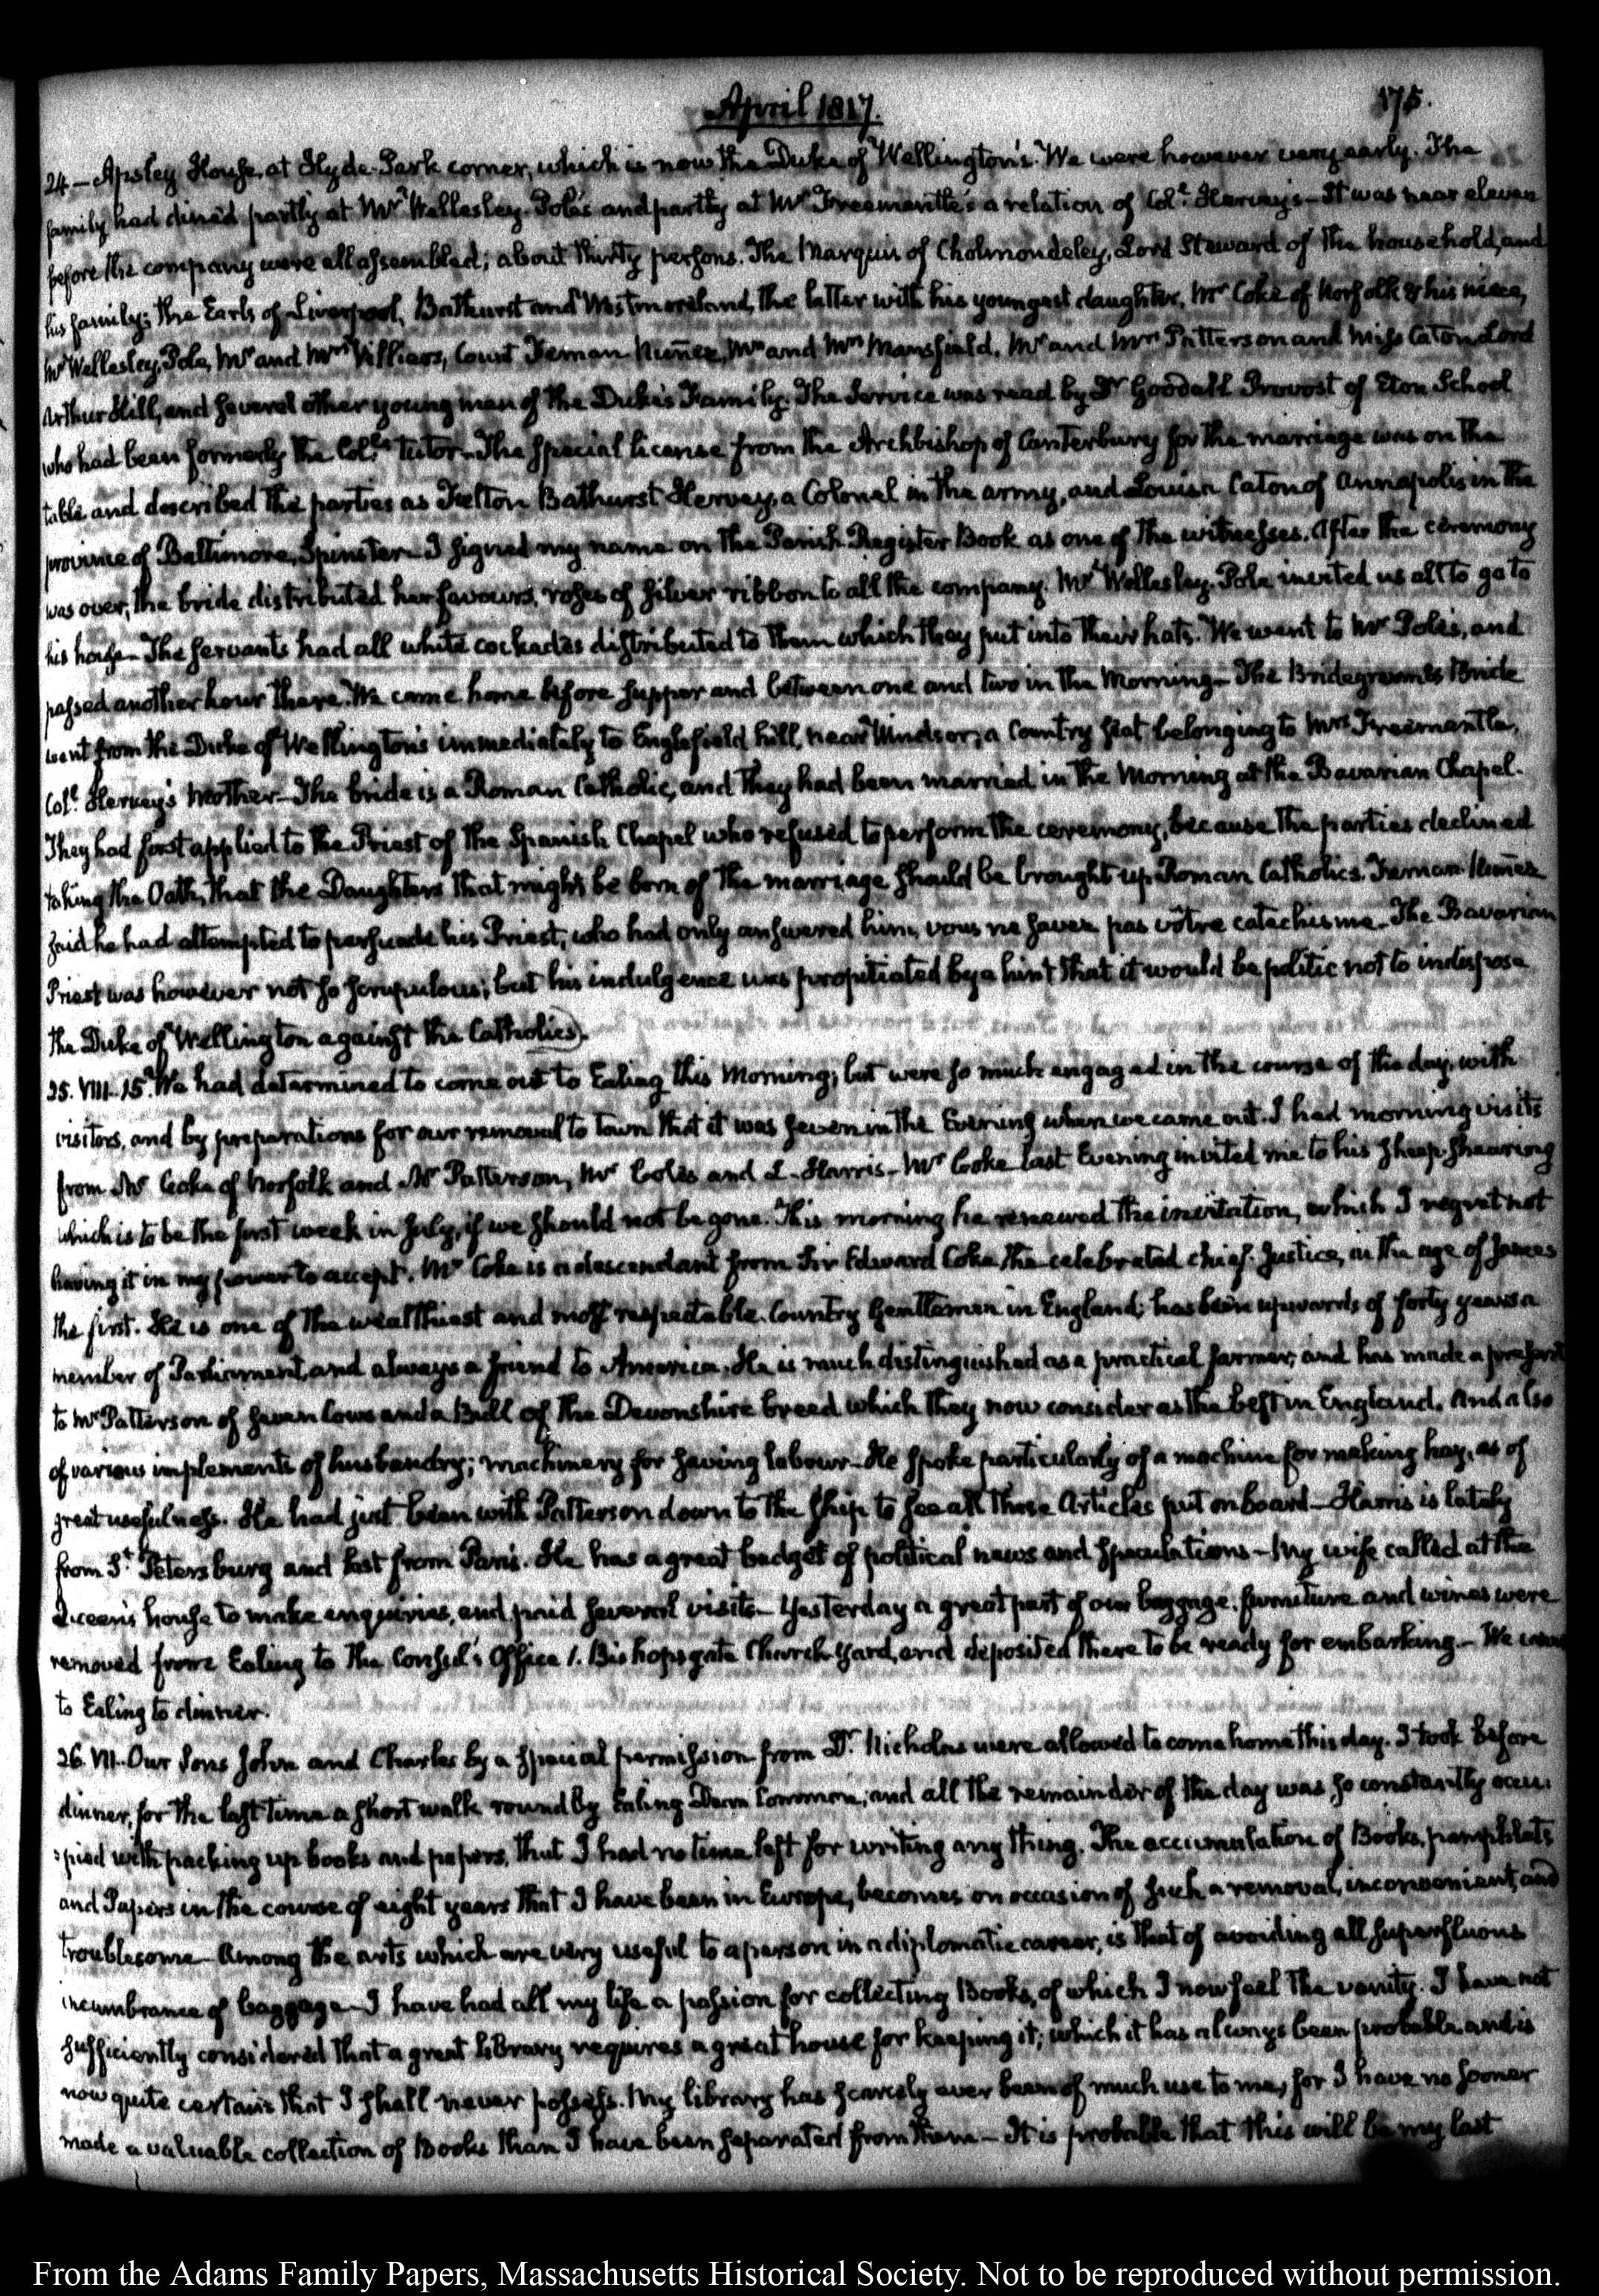 April 1817.
175.
24 — Apsley House, at Hyde-Park corner, which is now the Duke of Wellington's. We were however very early. The
family had dined partly at Mr Wellesley-Pole's and partly at Mr Freemantle's a relation of Coll. Hervey's — It was near eleven
before the company were all assembled; about thirty persons. The Marquis of Cholmondeley, Lord Steward of the household, and
his family; the Earls of Liverpool, Bathurst and Westmoreland, the latter with his youngest daughter, Mr Coke of Norfolk & his niece,
Mr Wellesley-Pole, Mr and Mrs Villiers, Count Fernan Nuñez, Mr and Mrs Mansfield, Mr and Mrs Patterson and Miss Caton Lord
Arthur Hill, and several other young men of the Duke's Family. The Service was read by Dr Goodall Provost of Eton School
who had been formerly the Col.l's tutor — The special license from the Archbishop of Canterbury for the marriage was on the
table and described the parties as Felton Bathurst Hervey, a Colonel in the army, and Louisa Caton of Annapolis in the
province of Baltimore, Spinster — I signed my name on the Parish Register Book as one of the witnesses. After the ceremony
was over, the bride distributed her favours, roses of silver ribbon to all the company. Mr Wellesley-Pole invited us all to go to
his house — The servants had all white cockades distributed to them which they put into their hats. We went to Mr Pole's, and
passed another hour there. We came home before supper and between one and two in the Morning — The Bridegroom & Bride
went from the Duke of Wellington's immediately to Englefield hill, near Windsor, a Country seat belonging to Mrs Freemantle,
Coll. Hervey's Mother — The bride is a Roman Catholic, and they had been married in the Morning at the Bavarian Chapel.
They had first applied to the Priest of the Spanish Chapel who refused to perform the ceremony, because the parties declined
taking the Oath, that the Daughters that might be born of the marriage should be brought up Roman Catholics. Fernan-Nuñez
said he had attempted to persuade his Priest, who had only answered him, vous ne savez pas vôtre catechisme — The Bavarian
Priest was however not so scrupulous; but his indulgence was propitiated by a hint that it would be politic not to indispose
the Duke of Wellington against the Catholics).
25. VIII. 15. We had determined to come out to Ealing this Morning; but were so much engaged in the course of the day, with
visitors, and by preparations for our removal to town that it was seven in the Evening when we came out. I had morning visits
from Mr Coke of Norfolk and Mr Patterson, Mr Coles and L. Harris — Mr Coke last Evening invited me to his sheep-shearing
which is to be the first week in July, if we should not be gone. This morning he renewed the invitation, which I regret not
having it in my power to accept. Mr Coke is a descendant from Sir Edward Coke, the celebrated chief-Justice, in the age of James
the first. He is one of the wealthiest and most respectable Country Gentlemen in England; has been upwards of forty years a
member of Parliament, and always a friend to America. He is much distinguished as a practical farmer, and has made a present
to Mr Patterson of seven Cows and a Bull of the Devonshire breed which they now consider as the best in England. And also
of various implements of husbandry; machinery for saving labour — He spoke particularly of a machine for making hay, as of
great usefulness. He had just been with Patterson down to the ship to see all these Articles put on board — Harris is lately
from St Petersburg and last from Paris. He has a great budget of political news and speculations — My wife called at the
Queen's house to make enquiries, and paid several visits — Yesterday a great part of our baggage, furniture and wines were
removed from Ealing to the Consul's Office 1. Bishopsgate Church-Yard, and deposited there to be ready for embarking — We came
to Ealing to dinner.
26. VII. Our Sons John and Charles by a special permission from Dr. Nicholas were allowed to come home this day. I took before
dinner, for the last time a short walk round by Ealing Dean Common, and all the remainder of the day was so constantly occu-
:pied with packing up books and papers, that I had no time left for writing any thing. The accumulation of Books, pamphlets
and Papers in the course of eight years that I have been in Europe, becomes on occasion of such a removal, inconvenient, and
troublesome — Among the arts which are very useful to a person in a diplomatic career, is that of avoiding all superfluous
incumbrance of baggage — I have had all my life a passion for collecting Books, of which I now feel the vanity. I have not
sufficiently considered that a great library requires a great house for keeping it; which it has always been probable and is
now quite certain that I shall never possess. My library has scarcely ever been of much use to me, for I have no sooner
made a valuable collection of Books than I have been separated from them — It is probable that this will be my last
From the Adams Family Papers, Massachusetts Historical Society. Not to be reproduced without permission.